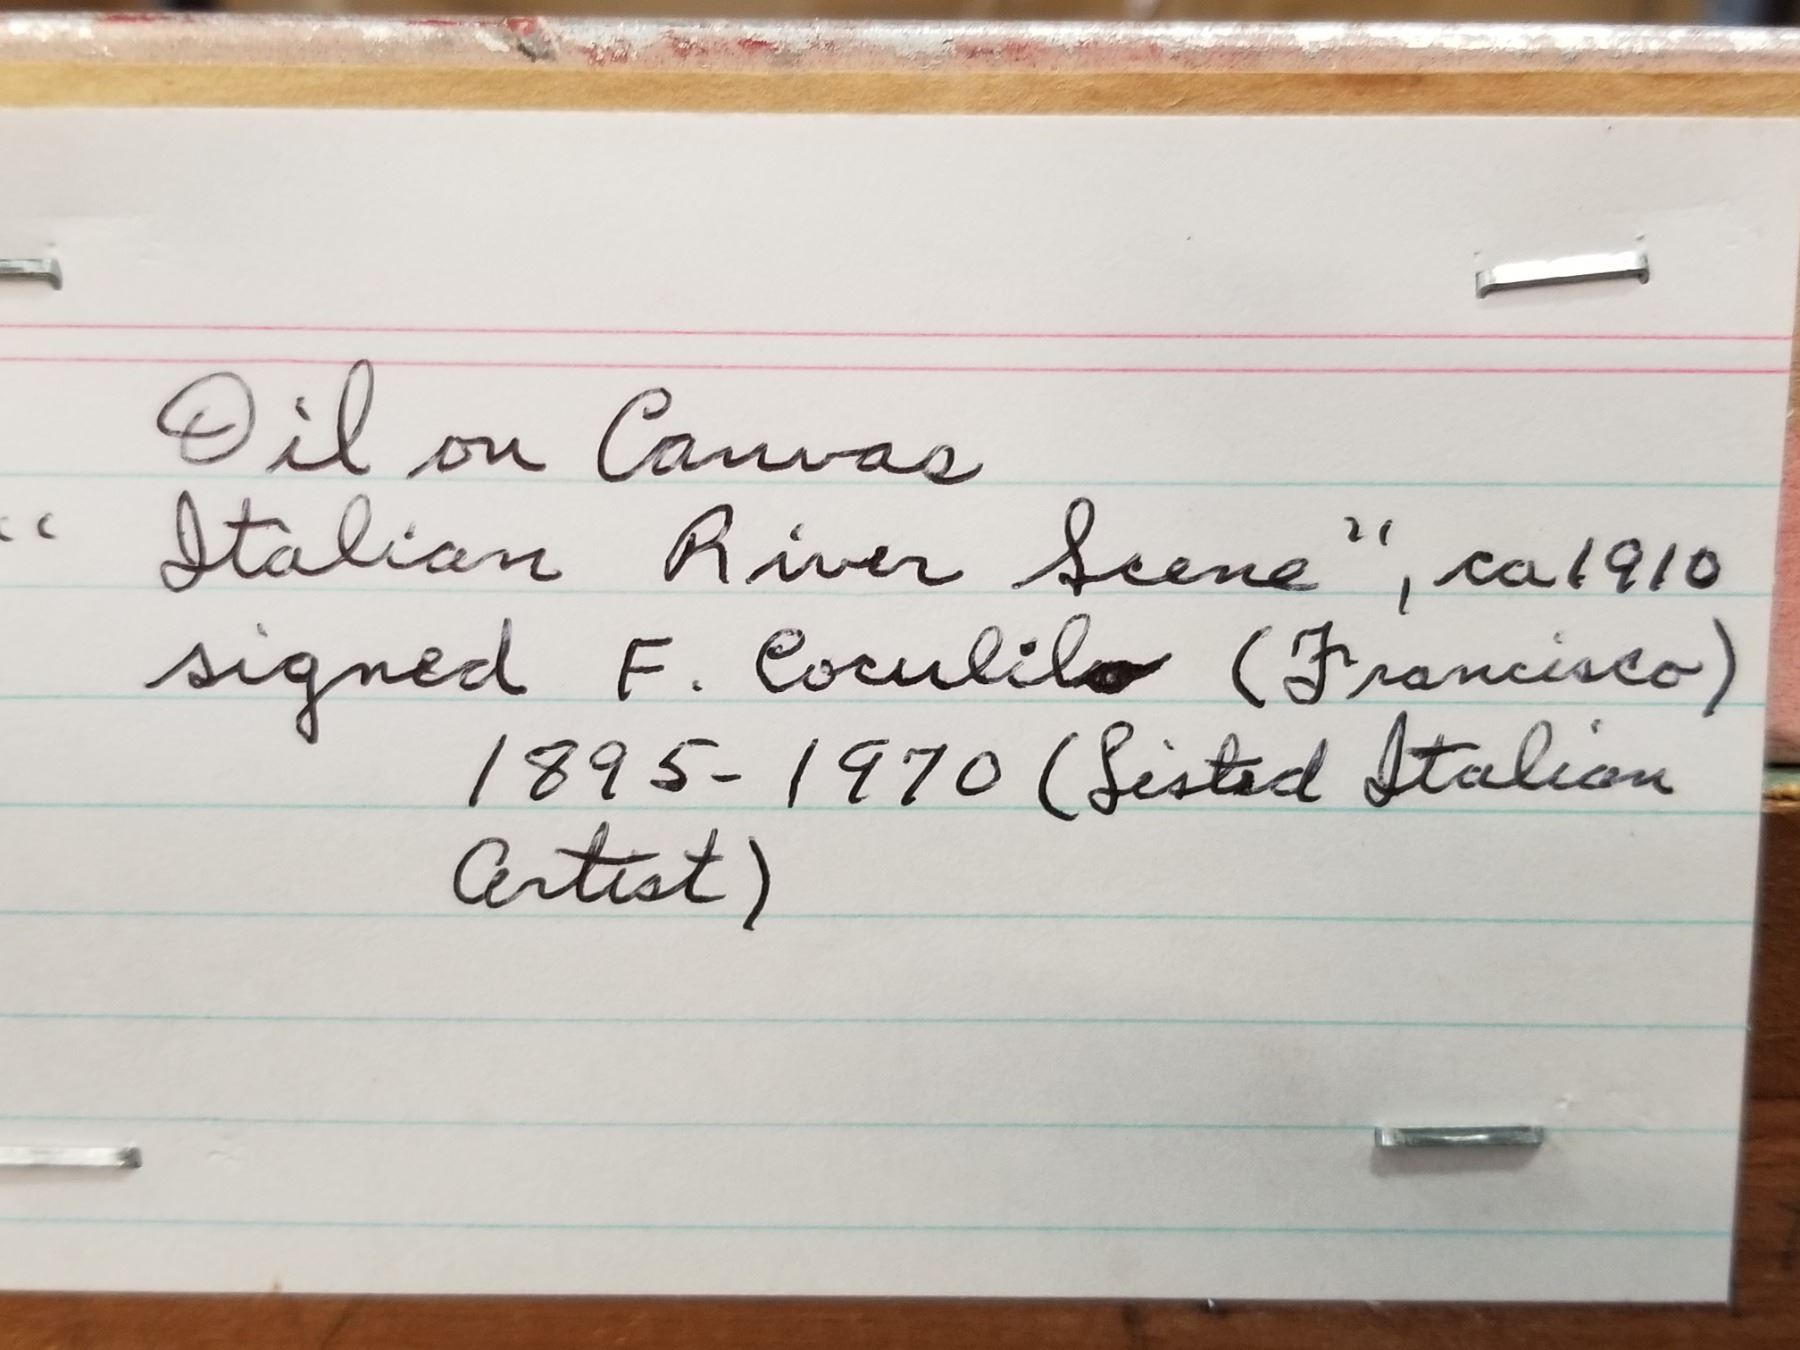 Oil on Canvas
" Italian River Scene", ca 1910
signed F. Coculilo (Francisco)
1895-1970 (Listed Italian
Artist)